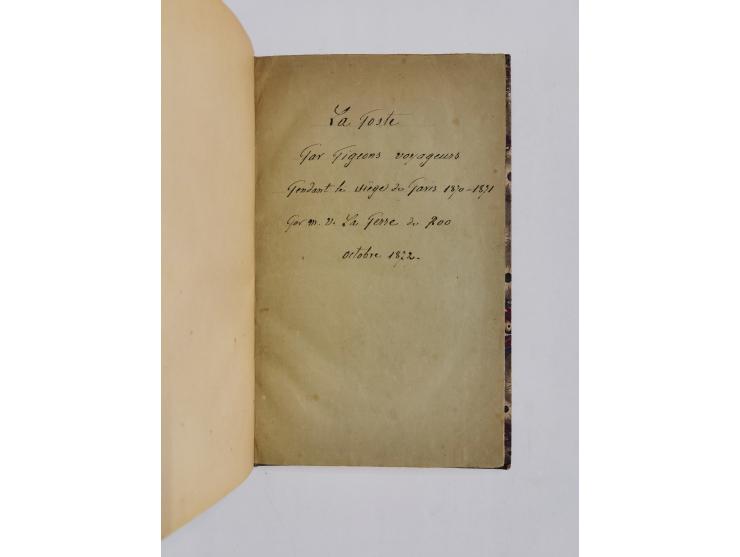 La Poste
Par Pigeons voyageurs
Pendant le siège de Paris 1870-1871
Par M. V. La Perre de Roo
octobre 1872-